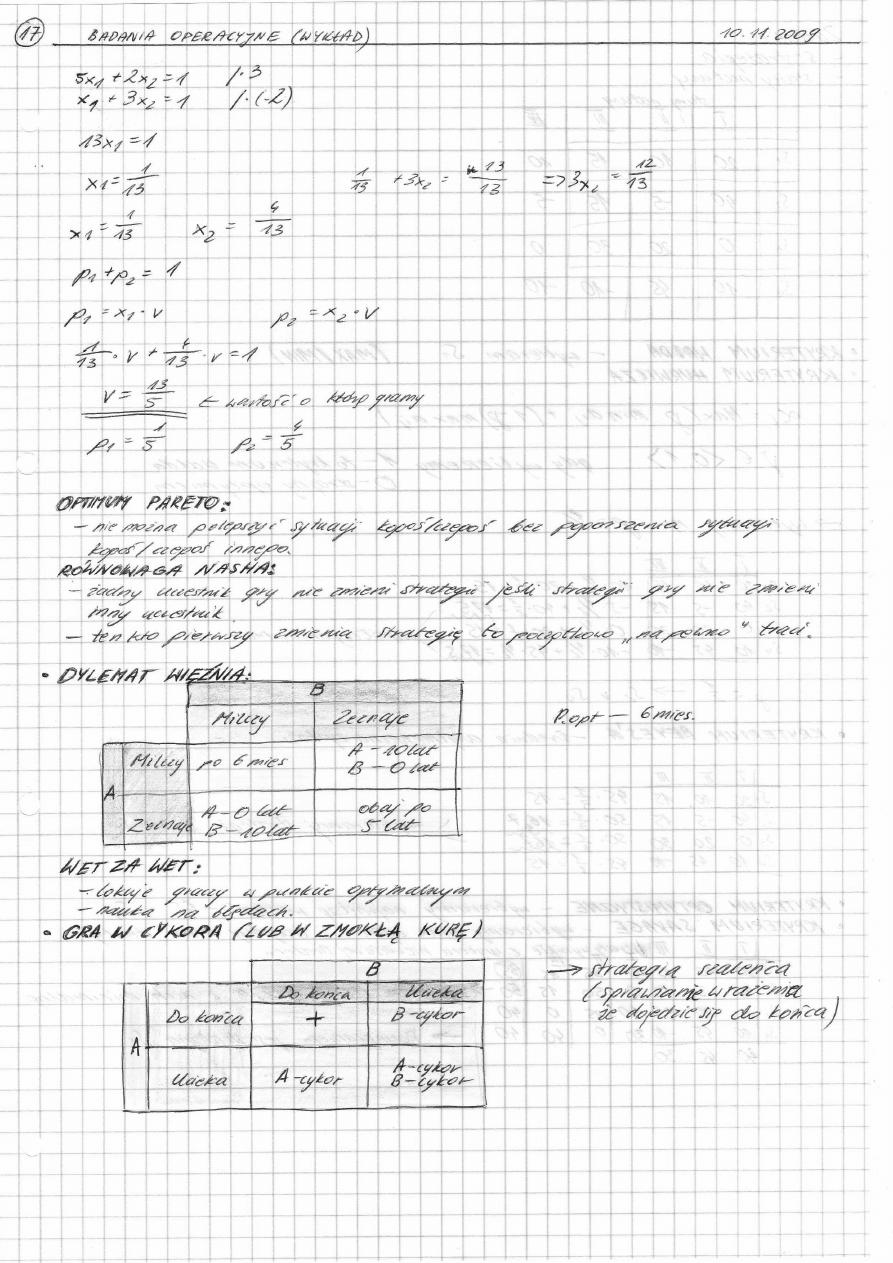 17 BADANIA OPERACYJNE (WYKŁAD) 10.11.2009
5x₁ + 2x₂ = 1 /·3
x₁ + 3x₂ = 1 /·(-2)
13x₁ = 1
x₁ = 1/13 1/13 + 3x₂ = 13/13 => 3x₂ = 12/13
x₁ = 1/13 x₂ = 4/13
p₁ + p₂ = 1
p₁ = x₁·v p₂ = x₂·v
1/13·v + 4/13·v = 1
v = 13/5 ← wartość o którą gramy
p₁ = 1/5 p₂ = 4/5
OPTIMUM PARETO:
- nie można polepszyć sytuacji kogoś/czegoś bez pogorszenia sytuacji
kogoś/czegoś innego.
RÓWNOWAGA NASHA:
- żadny uczestnik gry nie zmieni strategii jeśli strategii gry nie zmieni
inny uczestnik.
- ten kto pierwszy zmienia strategię to początkowo „na pewno" traci.
• DYLEMAT WIĘŹNIA:
B
Milczy Zeznaje P.opt — 6 mies.
A
Milczy po 6 mies A - 10 lat
B - 0 lat
Zeznaje A - 0 lat obaj po
B - 10 lat 5 lat
WET ZA WET:
- lokuje graczy w punkcie optymalnym
- nauka na błędach.
• GRA W CYKORA (LUB W ZMOKŁĄ KURĘ)
B → strategia szaleńca
Do końca Ucieka (sprawianie wrażenia
Do końca + B-cykor że dojedzie się do końca)
A
Ucieka A-cykor A-cykor
B-cykor